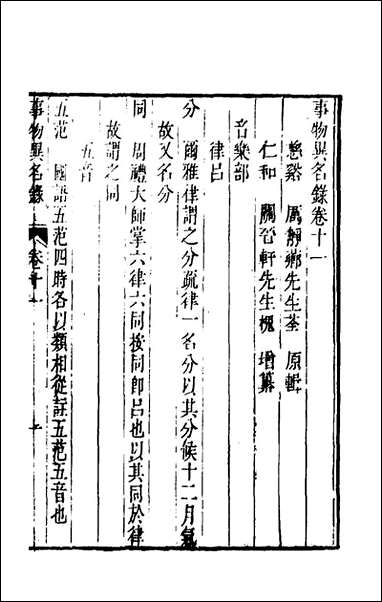 事物異名錄卷十一
慈谿 厲靜薌先生荃 原輯
仁和 關晉軒先生槐 增纂
音樂部
律呂
分 爾雅律謂之分疏律一名分以其分候十二月氣
故又名分
同 周禮大師掌六律六同按同即呂也以其同於律
故謂之同
五音
五范 國語五范四時各以類相從註五范五音也
事物異名錄 卷十一